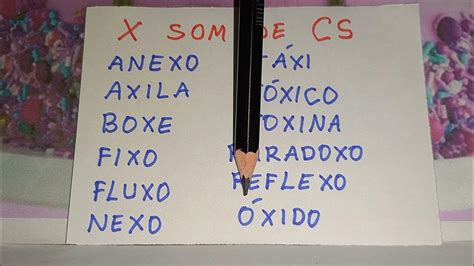 X SOM DE CS
ANEXO
AXILA
BOXE
FIXO
FLUXO
NEXO
TÁXI
TÓXICO
TOXINA
PARADOXO
REFLEXO
ÓXIDO